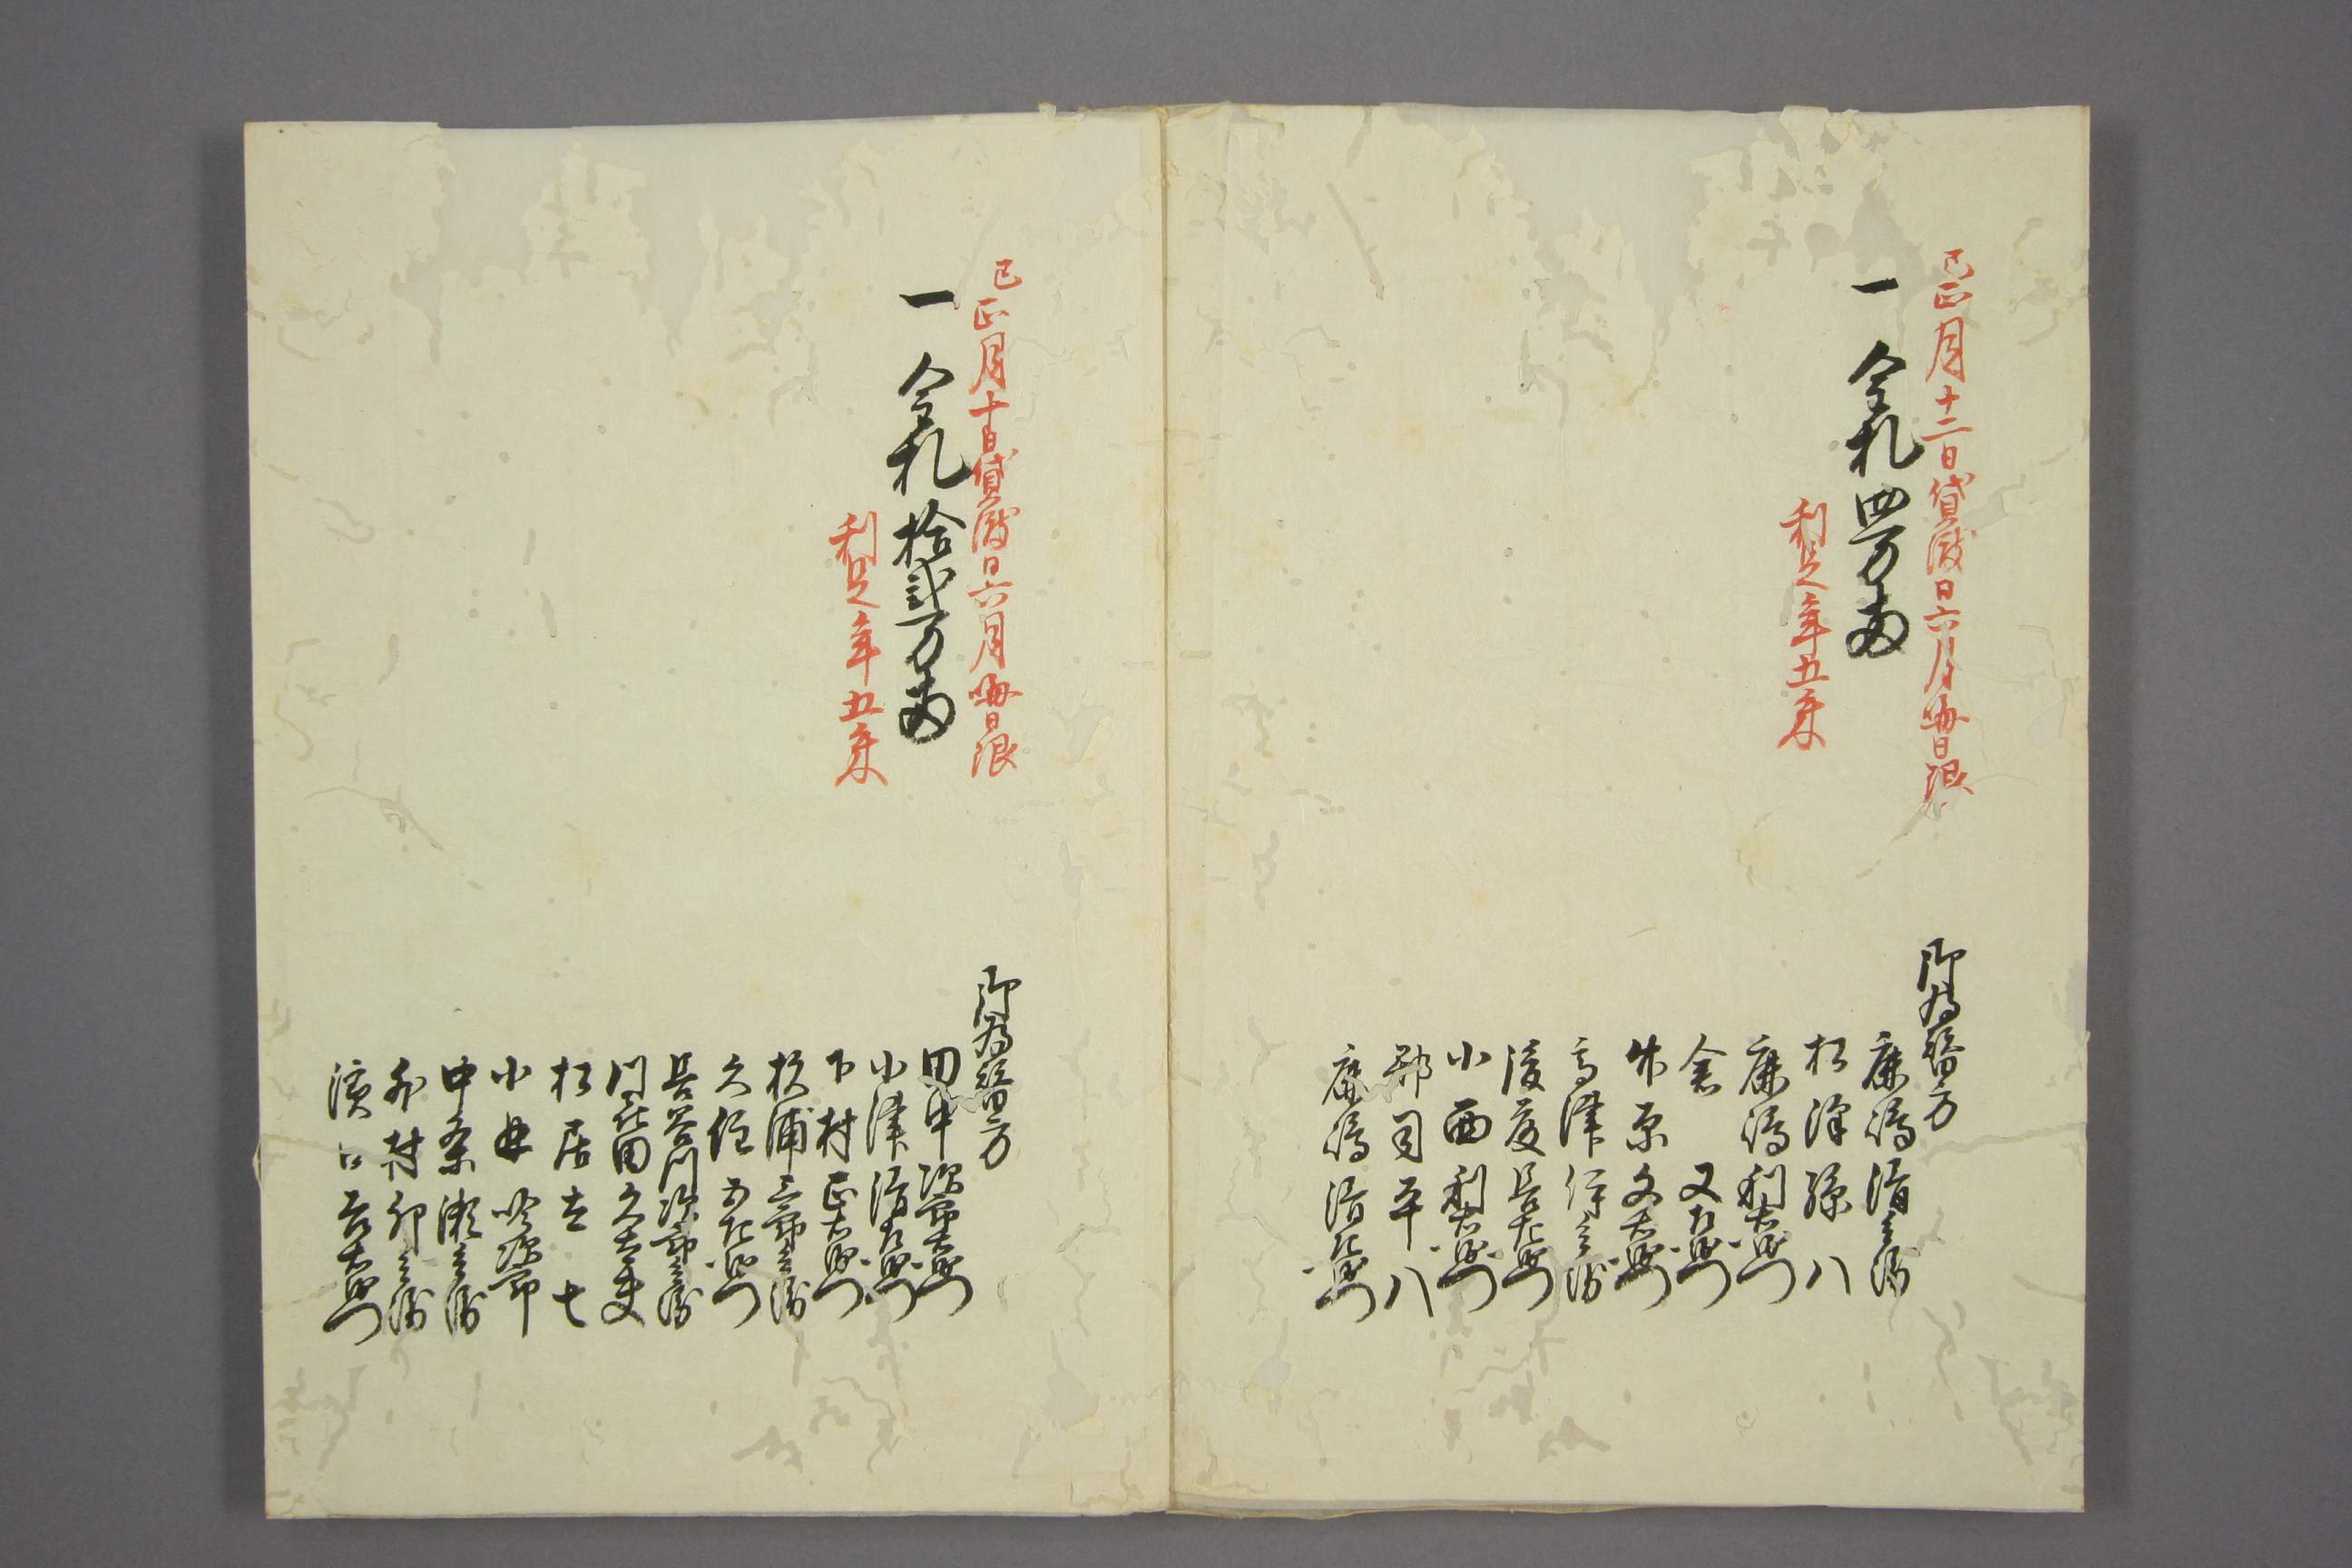 巳正月十二日貸渡日六月晦日限
一 金札四万両
利足年五朱
御為替方
廣嶋清兵衛
松澤孫八
廣嶋利右衛門
倉又左衛門
竹原文右衛門
高津伊兵衛
後度長左衛門
小西利右衛門
郡司平八
廣嶋治左衛門
巳正月十日貸渡日六月晦日限
一 金札拾弐万両
利足年五朱
御為替方
田中次郎右衛門
小津清左衛門
下村正右衛門
杉浦三郎兵衛
久住五左衛門
長谷川次郎兵衛
川喜田久太夫
松居吉七
小林吟次郎
中条瀬兵衛
外村卯兵衛
濱口吉右衛門